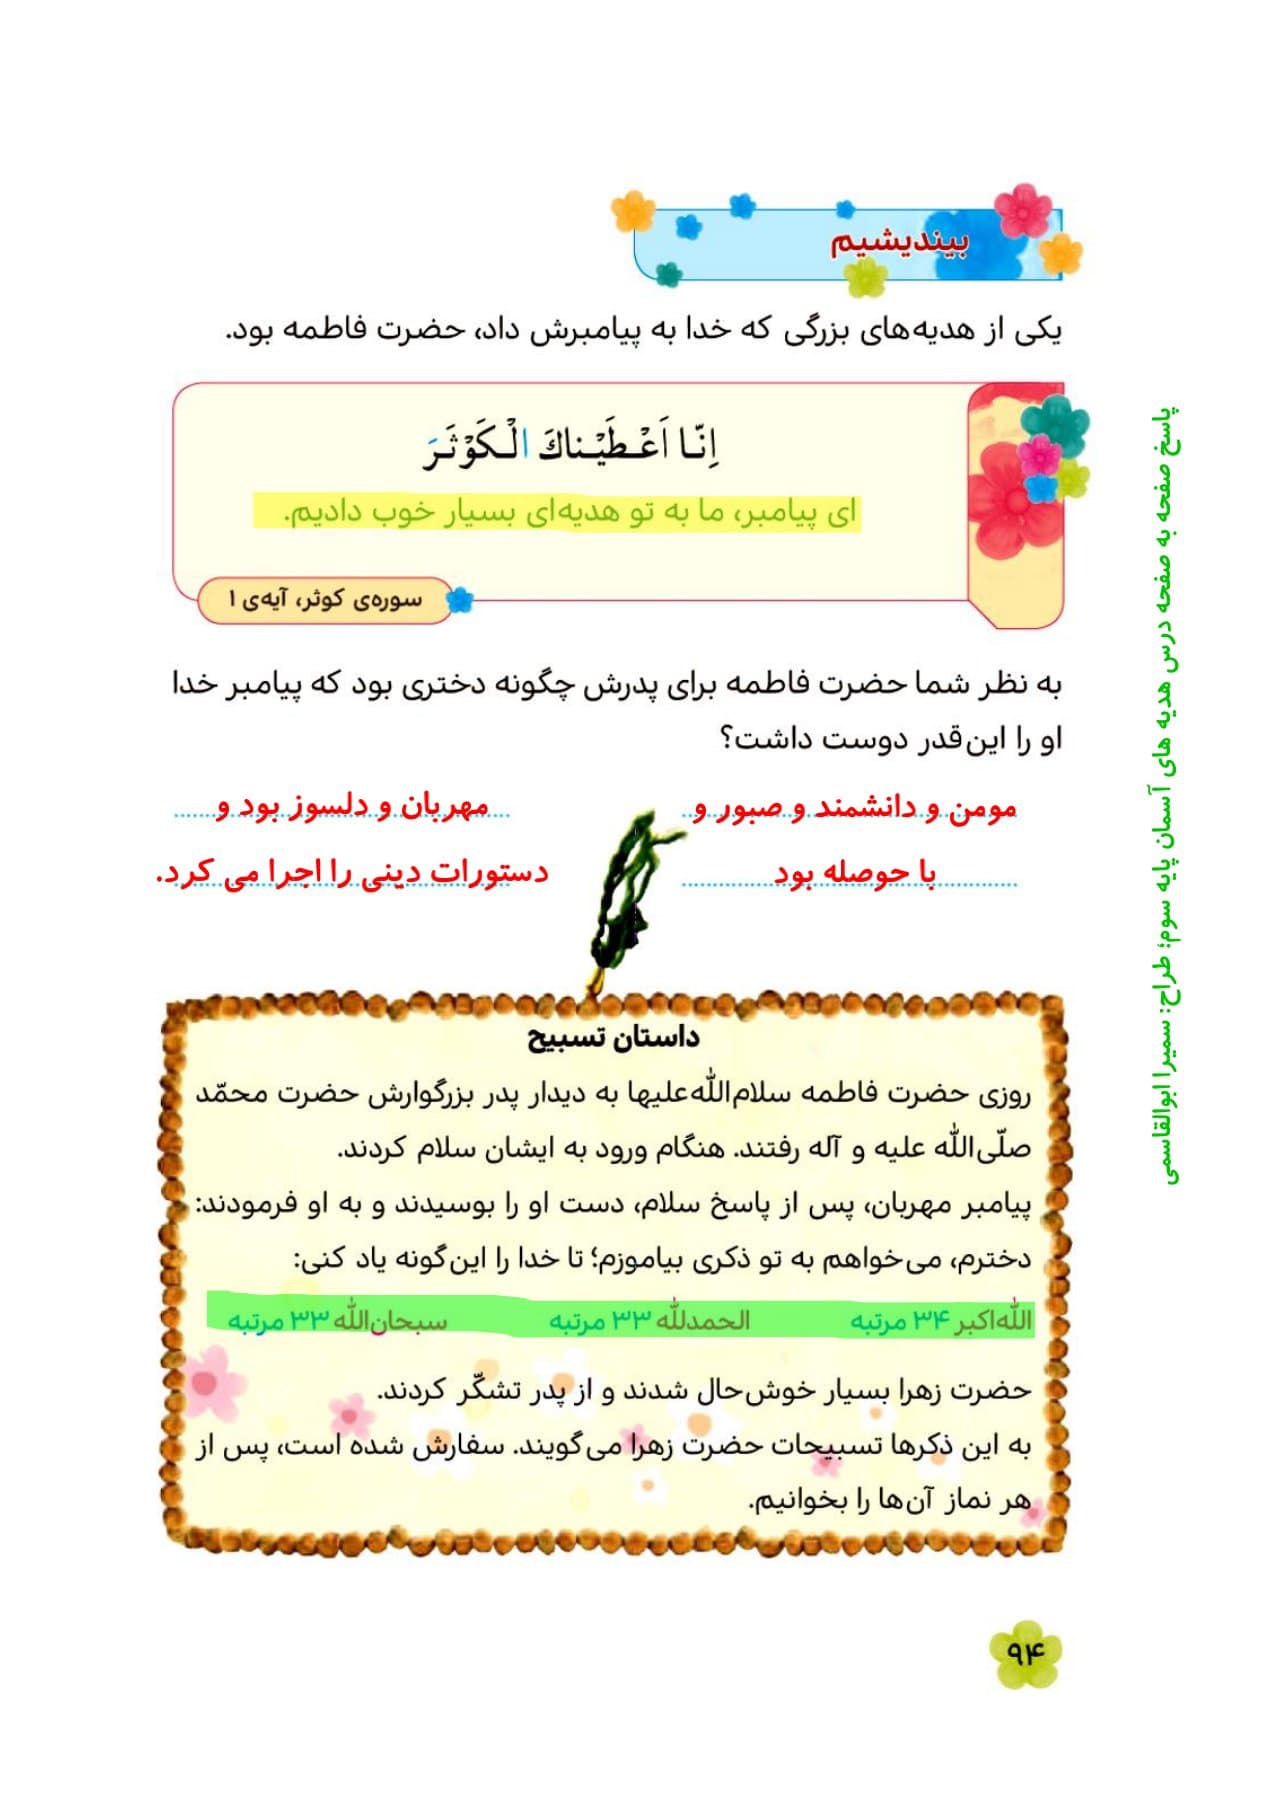 بیندیشیم
یکی از هدیه‌های بزرگی که خدا به پیامبرش داد، حضرت فاطمه بود.
اِنّـا اَعْـطَیْـناكَ الْـکَوْثَـرَ
ای پیامبر، ما به تو هدیه‌ای بسیار خوب دادیم.
سوره‌ی کوثر، آیه‌ی ۱
به نظر شما حضرت فاطمه برای پدرش چگونه دختری بود که پیامبر خدا
او را این‌قدر دوست داشت؟
مومن و دانشمند و صبور و
مهربان و دلسوز بود و
با حوصله بود
دستورات دینی را اجرا می کرد.
داستان تسبیح
روزی حضرت فاطمه سلام‌الله‌علیها به دیدار پدر بزرگوارش حضرت محمّد
صلّی‌الله علیه و آله رفتند. هنگام ورود به ایشان سلام کردند.
پیامبر مهربان، پس از پاسخ سلام، دست او را بوسیدند و به او فرمودند:
دخترم، می‌خواهم به تو ذکری بیاموزم؛ تا خدا را این‌گونه یاد کنی:
الله‌اکبر ۳۴ مرتبه الحمدلله ۳۳ مرتبه سبحان‌الله ۳۳ مرتبه
حضرت زهرا بسیار خوش‌حال شدند و از پدر تشکّر کردند.
به این ذکرها تسبیحات حضرت زهرا می‌گویند. سفارش شده است، پس از
هر نماز آن‌ها را بخوانیم.
۹۴
پاسخ صفحه به صفحه درس هدیه های آسمان پایه سوم؛ طراح: سمیرا ابوالقاسمی